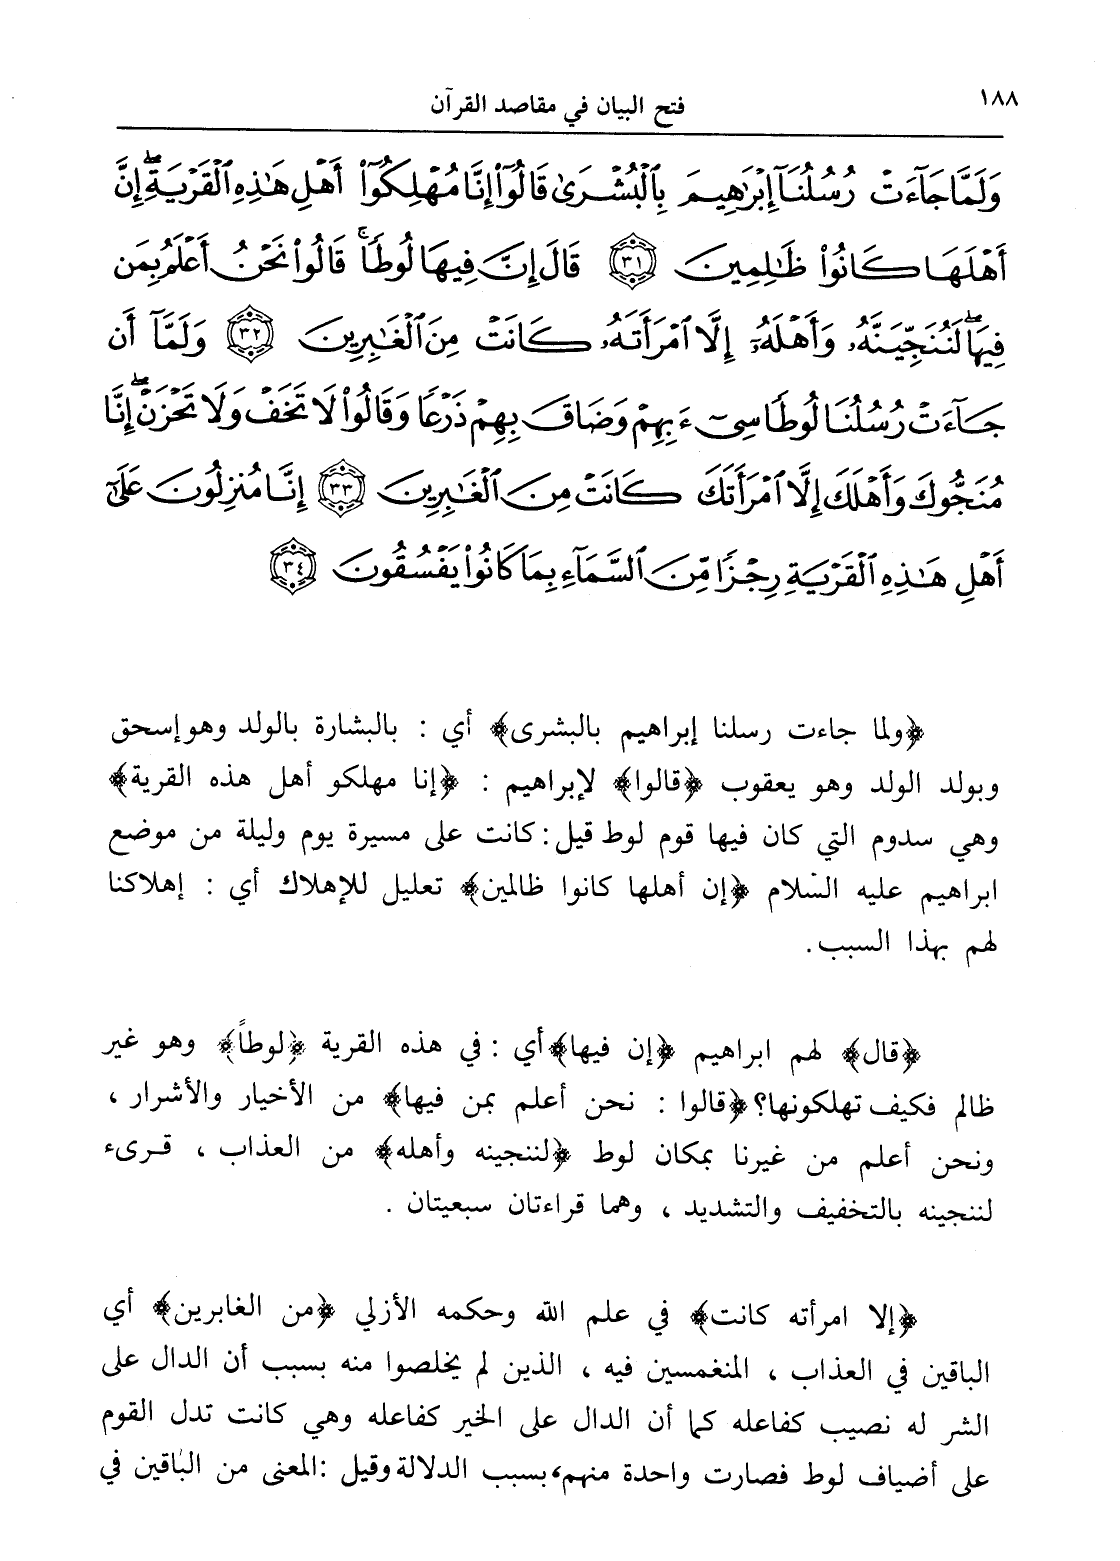 ١٨٨
فتح البيان في مقاصد القرآن
وَلَمَّا جَآءَتْ رُسُلُنَآ إِبْرَٰهِيمَ بِٱلْبُشْرَىٰ قَالُوٓا۟ إِنَّا مُهْلِكُوٓا۟ أَهْلِ هَٰذِهِ ٱلْقَرْيَةِ ۖ إِنَّ
أَهْلَهَا كَانُوا۟ ظَٰلِمِينَ ﴿٣١﴾ قَالَ إِنَّ فِيهَا لُوطًا ۚ قَالُوا۟ نَحْنُ أَعْلَمُ بِمَن
فِيهَا ۖ لَنُنَجِّيَنَّهُۥ وَأَهْلَهُۥٓ إِلَّا ٱمْرَأَتَهُۥ كَانَتْ مِنَ ٱلْغَٰبِرِينَ ﴿٣٢﴾ وَلَمَّآ أَن
جَآءَتْ رُسُلُنَا لُوطًا سِىٓءَ بِهِمْ وَضَاقَ بِهِمْ ذَرْعًا وَقَالُوا۟ لَا تَخَفْ وَلَا تَحْزَنْ ۖ إِنَّا
مُنَجُّوكَ وَأَهْلَكَ إِلَّا ٱمْرَأَتَكَ كَانَتْ مِنَ ٱلْغَٰبِرِينَ ﴿٣٣﴾ إِنَّا مُنزِلُونَ عَلَىٰٓ
أَهْلِ هَٰذِهِ ٱلْقَرْيَةِ رِجْزًا مِّنَ ٱلسَّمَآءِ بِمَا كَانُوا۟ يَفْسُقُونَ ﴿٣٤﴾
﴿ولما جاءت رسلنا إبراهيم بالبشرى﴾ أي : بالبشارة بالولد وهو إسحق
وبولد الولد وهو يعقوب ﴿قالوا﴾ لإبراهيم : ﴿إنا مهلكو أهل هذه القرية﴾
وهي سدوم التي كان فيها قوم لوط قيل : كانت على مسيرة يوم وليلة من موضع
ابراهيم عليه السلام ﴿إن أهلها كانوا ظالمين﴾ تعليل للإهلاك أي : إهلاكنا
لهم بهذا السبب .
﴿قال﴾ لهم ابراهيم ﴿إن فيها﴾ أي : في هذه القرية ﴿لوطاً﴾ وهو غير
ظالم فكيف تهلكونها؟ ﴿قالوا : نحن أعلم بمن فيها﴾ من الأخيار والأشرار ،
ونحن أعلم من غيرنا بمكان لوط ﴿لننجينه وأهله﴾ من العذاب ، قرىء
لننجينه بالتخفيف والتشديد ، وهما قراءتان سبعيتان .
﴿إلا امرأته كانت﴾ في علم الله وحكمه الأزلي ﴿من الغابرين﴾ أي
الباقين في العذاب ، المنغمسين فيه ، الذين لم يخلصوا منه بسبب أن الدال على
الشر له نصيب كفاعله كما أن الدال على الخير كفاعله وهي كانت تدل القوم
على أضياف لوط فصارت واحدة منهم، بسبب الدلالة وقيل : المعنى من الباقين في